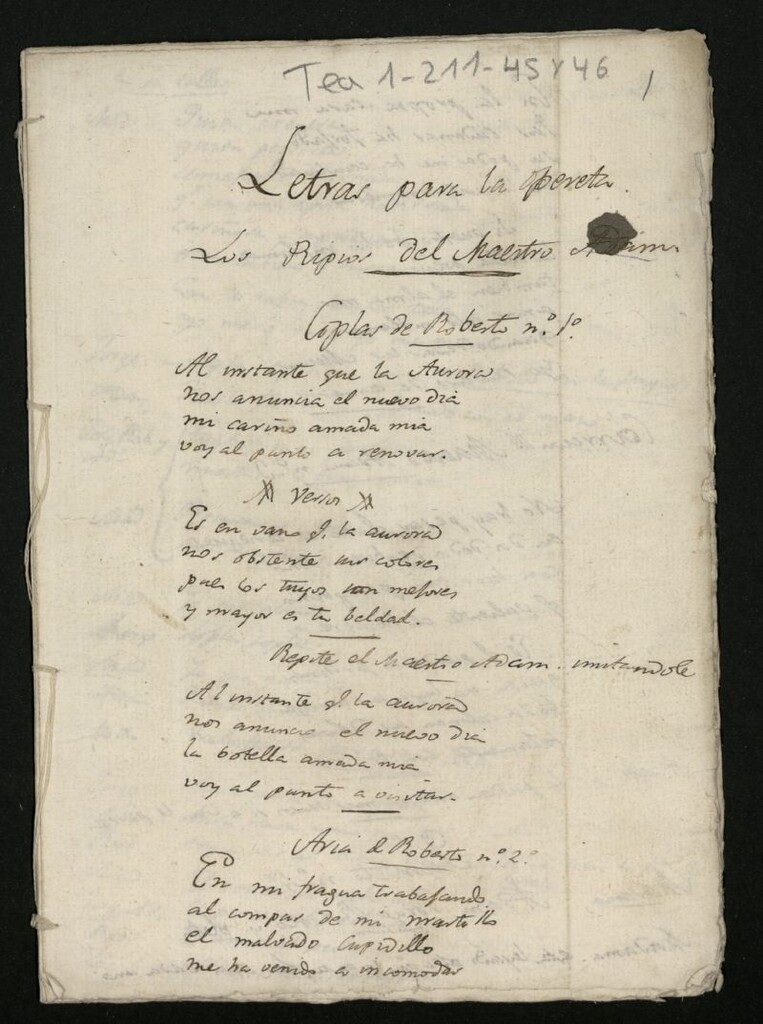 Tea 1-211-45 y 46
1
Letras para la opereta.
Los Ripios del Maestro Adam
Coplas de Roberto n.º 1º
Al instante que la Aurora
nos anuncia el nuevo dia
mi cariño amada mia
voy al punto a renovar.
Versos
Es en vano q. la aurora
nos obstente sus colores
pues los tuyos son mejores
y mayor es tu beldad.
Repite el Maestro Adam. imitandole
Al instante q. la aurora
nos anuncia el nuevo dia
la botella amada mia
voy al punto a visitar.
Aria de Roberto n.º 2º
En mi fragua trabajando
al compas de mi martillo
el malvado Cupidillo
me ha venido a incomodar